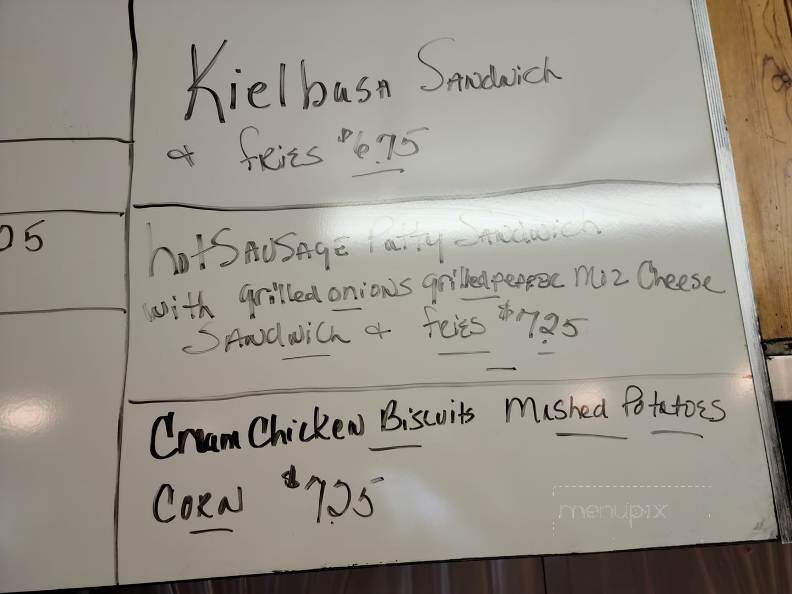 Kielbasa Sandwich
& fries $6.75
05
hot Sausage Patty Sandwich
with grilled onions grilled pepper Moz Cheese
Sandwich & fries $7.25
Cream Chicken Biscuits Mashed Potatoes
Corn $7.25
menupix